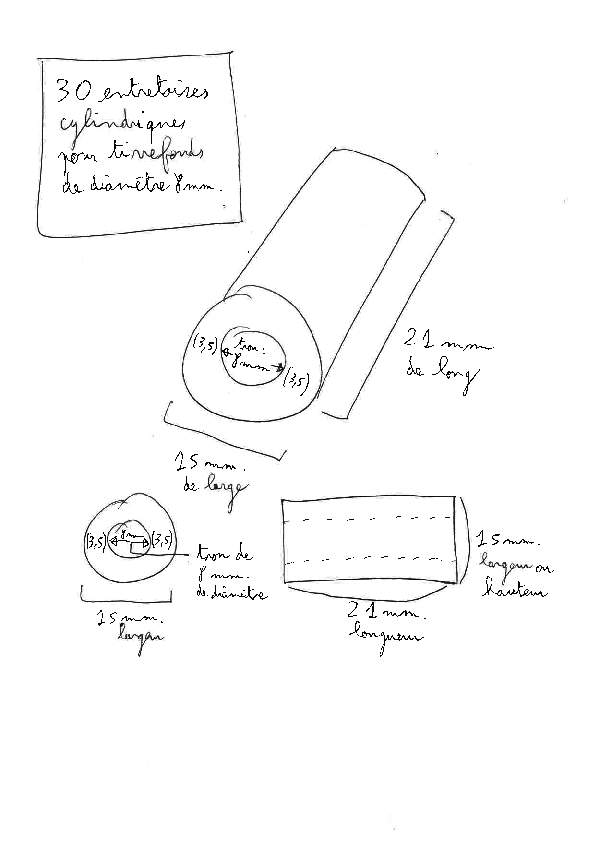 30 entretoises
cylindriques
pour tirefonds
de diamêtre 8mm.
(3,5)
trou :
8mm
(3,5)
21 mm
de long
15 mm.
de large
(3,5)
8m
(3,5)
trou de
8 mm.
de diamêtre
15 mm.
largeur
15 mm.
largeur ou
hauteur
21 mm.
longueur